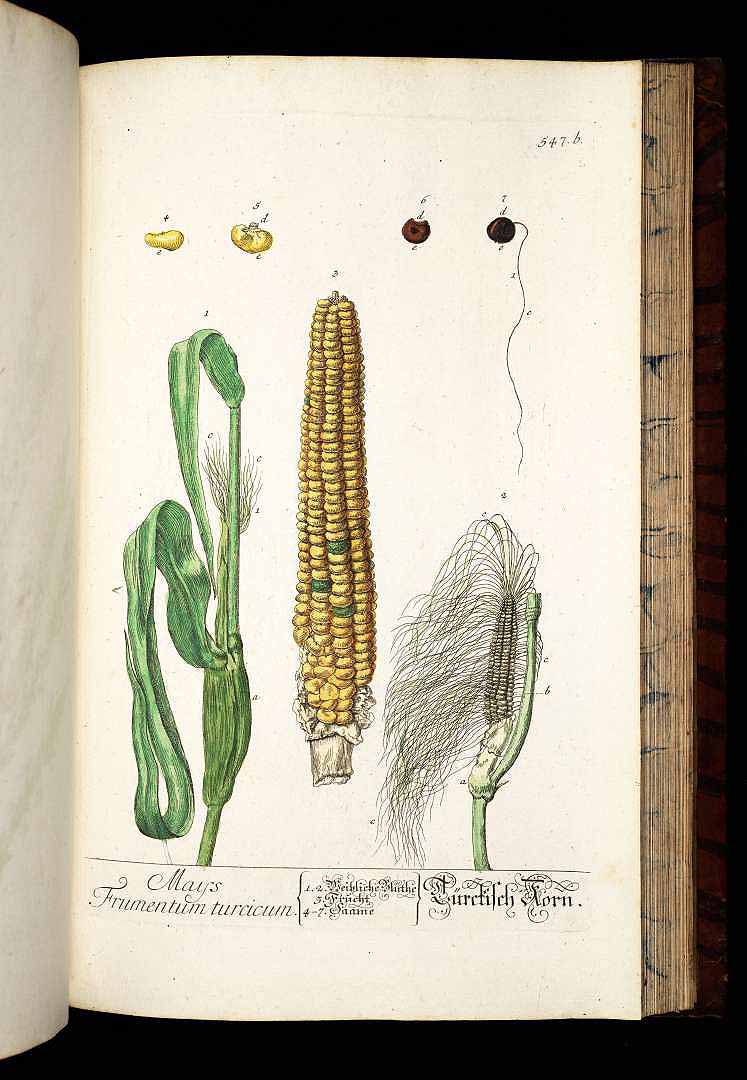 547. b.
4 5 6 7
d d d
e e e e
1 3 1
c
2
c c c
1
A c
a b
a
c
Mays
Frumentum turcicum.
1. 2. Weibliche Blüthe
3. Frucht
4-7. Saame
Türckisch Korn.